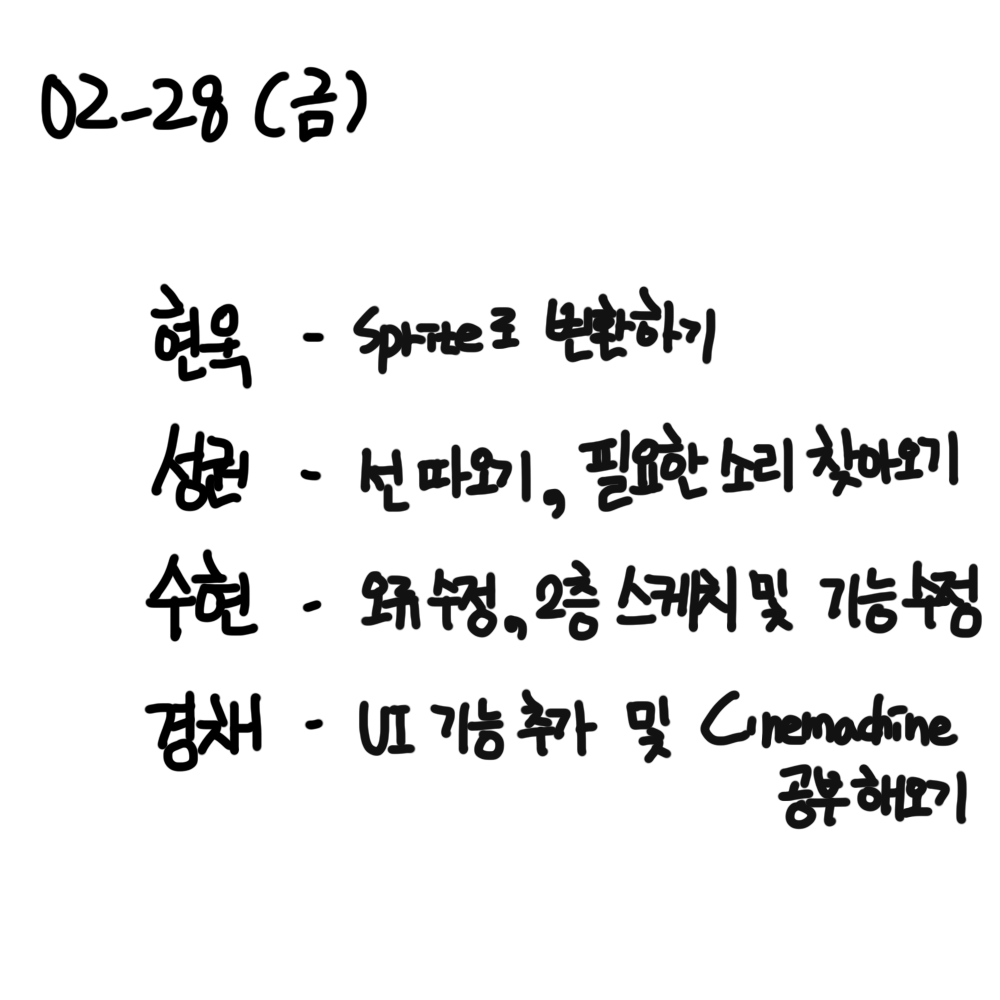 02-28 (금)
현욱 - Sprite로 변환하기
성권 - 선 따오기, 필요한 소리 찾아오기
수현 - 오류 수정, 2층 스케치 및 기능 수정
경채 - UI 기능 추가 및 Cinemachine
공부해오기